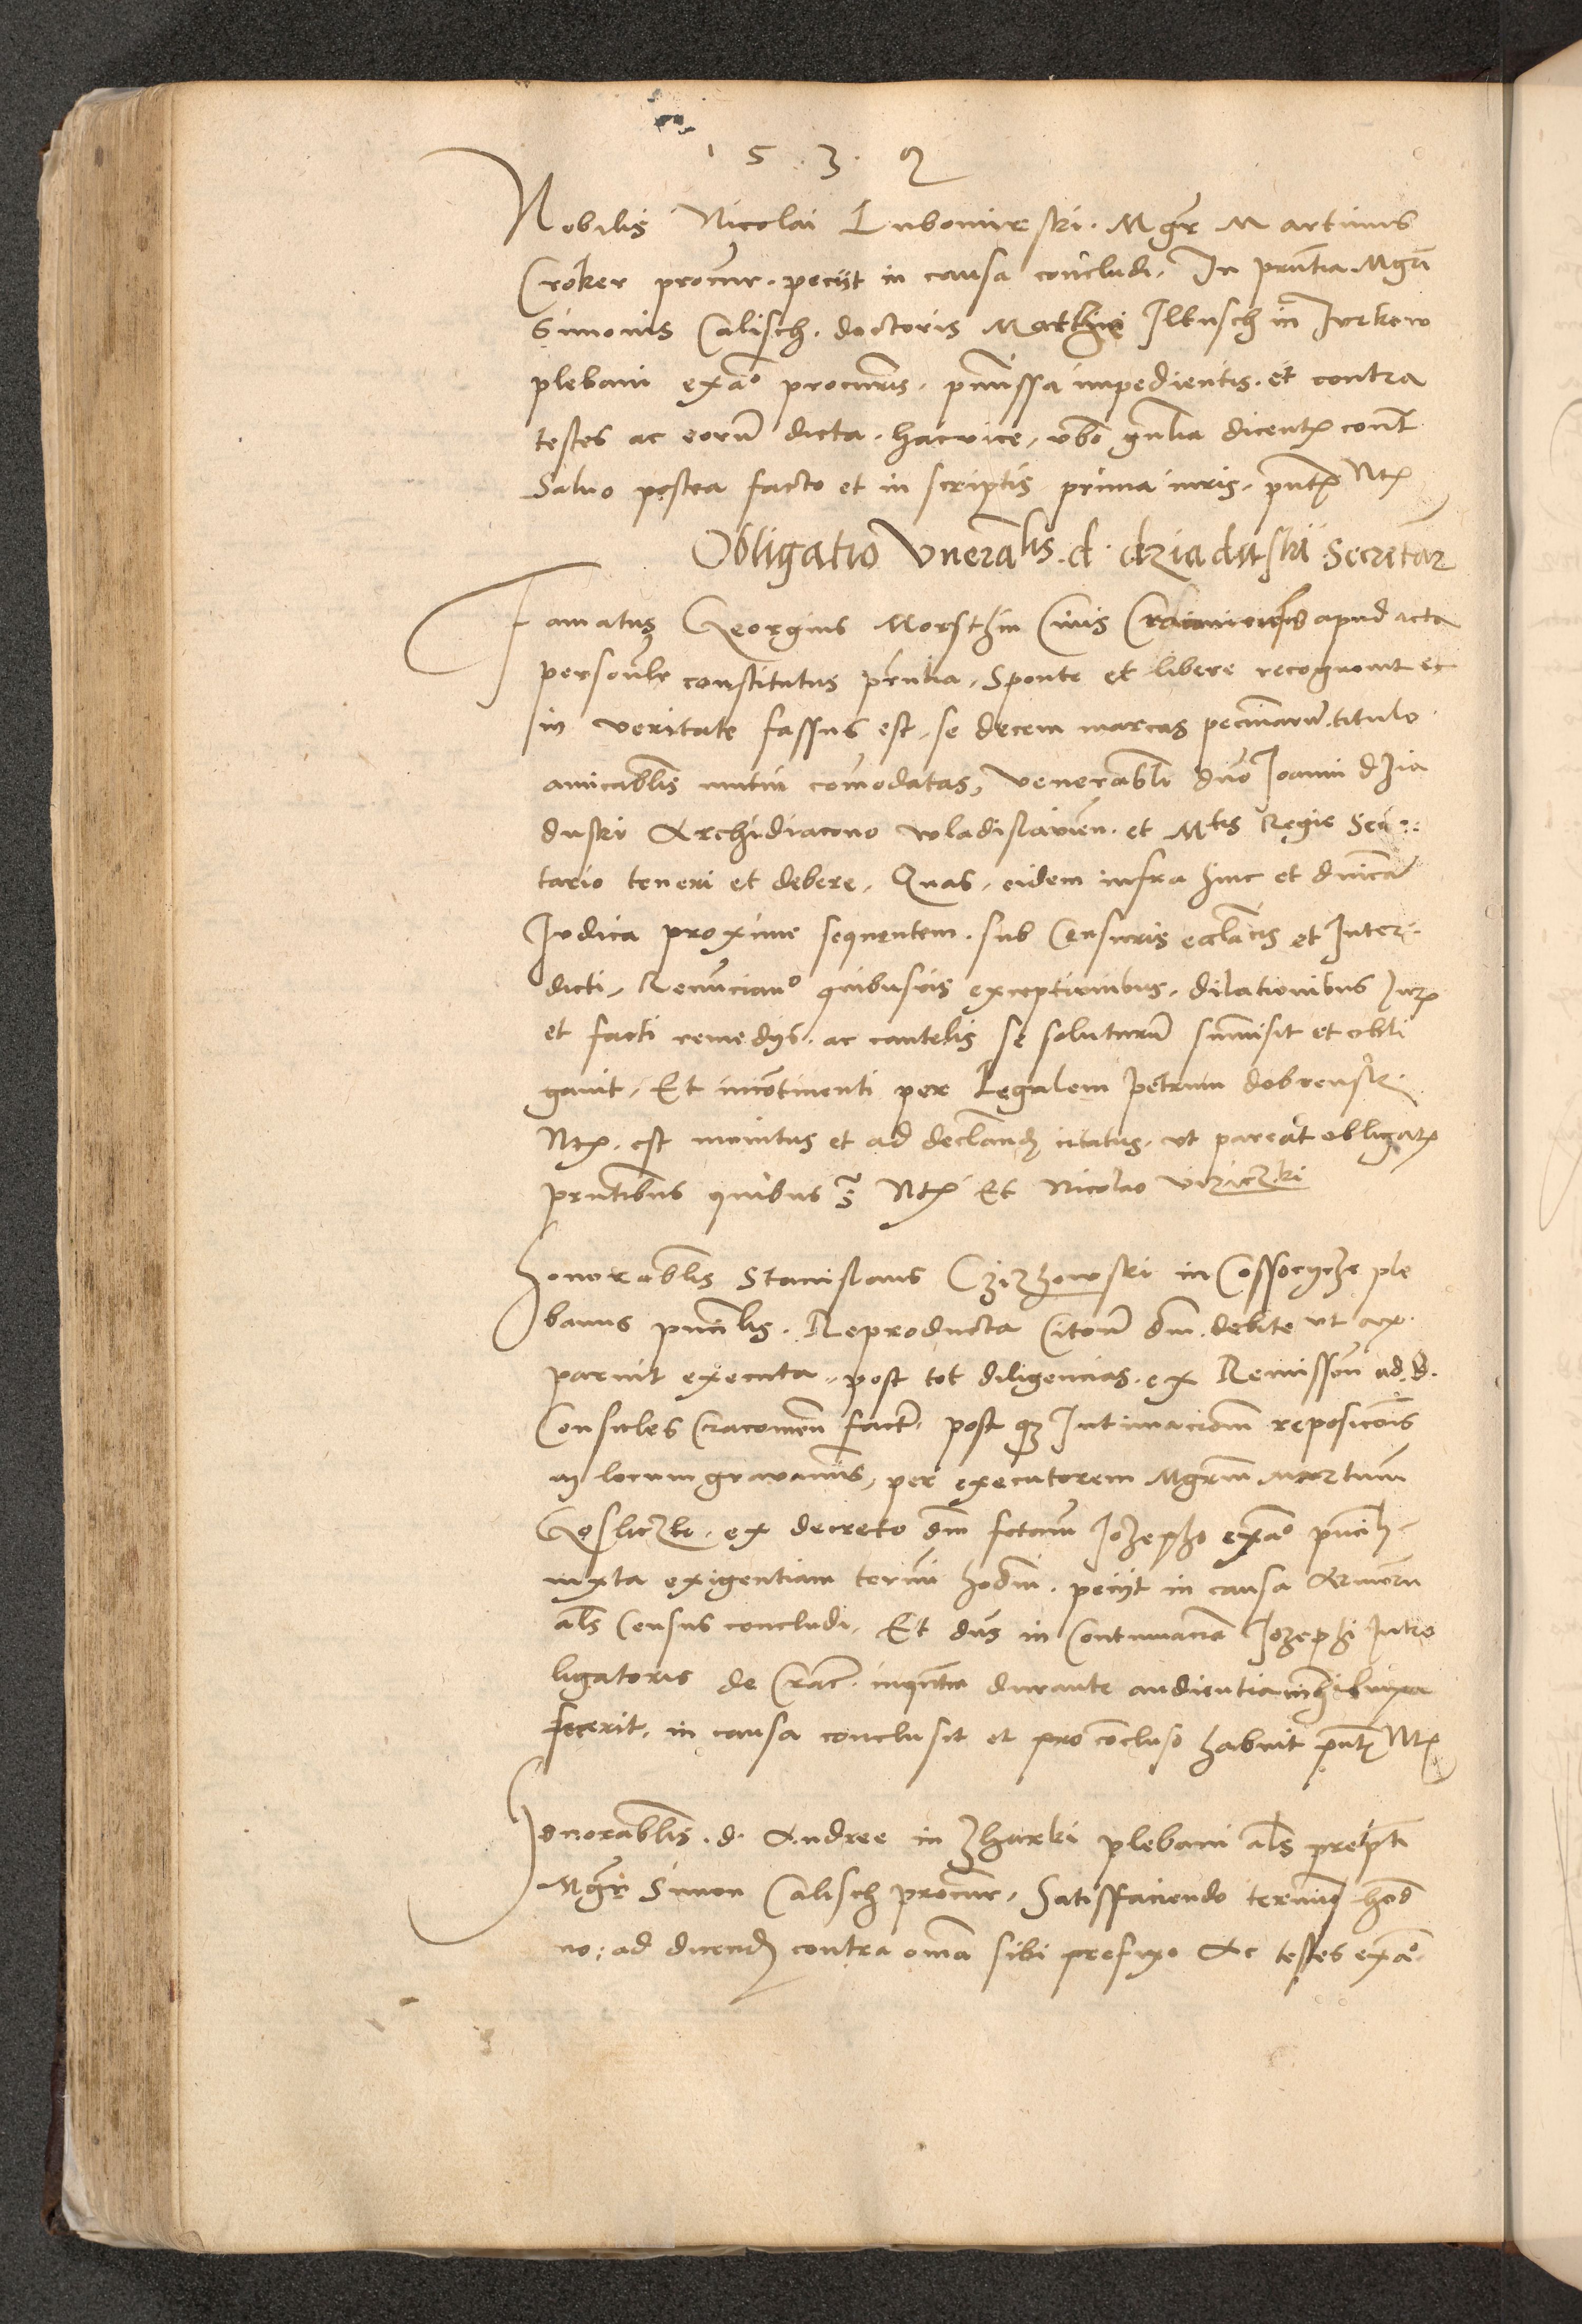 1 5 . 3 . 2
Nobilis Nicolai Lubomirski . Mgr Martinus
Croker procur . peciit in causa concludi . In pruntia Mgri
Simonis Calisch . doctoris Mathie Ilkusch in Jurkow
plebani exao procuris . pmissa impedientis . et contra
testes ac eorum dicta . hac vice , vbo gnalia dicent cont
Salvo postea facto et in scriptis prima iuris . pntt Ntt
Obligatio Vnerablis . d . dziaduski Secretar
Famatus Georgius Morsthin Civis apud acta
personlr constitutus prntia , Sponte et libere recognovit et
in veritate fassus est , se decem marcas pecuniarum titulo
amicablis mutui comodatas , venerabli dno Joanni dzia
duski Archidiacono Wladislavien . et Mtis Regie Secre
tario teneri et debere , Quas , eidem infra hinc et dnicam
Judica proxime sequentem . sub Censuris ecclacis et Inter
dicti , Renunciano quibusvis exceptionibus , dilationibus Juris
et facti remedys . ac cautelis se soluturum summisit et obli
gavit , Et incontinenti per Legalem Petrum dobrensk
Ntt . est monitus et ad declarand citatus . ut pareat obligat
prntibus quibus s Ntt Et Nicolao
Honorablis Stanislaus Czizowski in Cossoczycze ple
banus pncilis . Reproducta Citone dni debite ut
paruit executa , post tot diligencias . ex Remissione ad . d .
Consules Cracovien fact . post qz Intimacionem reposicionis
in locum gravaminis , per executorem Mgrum Martinum
ex decreto dni fctam Jozepho exao pncili
iuxta exigentiam termini hodni . peciit in causa
als Census concludi . Et dns in Contumacia Jozephi Intro
ligatoris de Crac . durante audientia
fecerit , in causa conclusit et pro concluso habuit pntt Ntt
Honorablis . d . Andree in Zharki plebani als
Mgr Simon Calisch procur , Satisfaciendo termino hod
no : ad dicend contra omnia sibi prefixo Ac testes exao